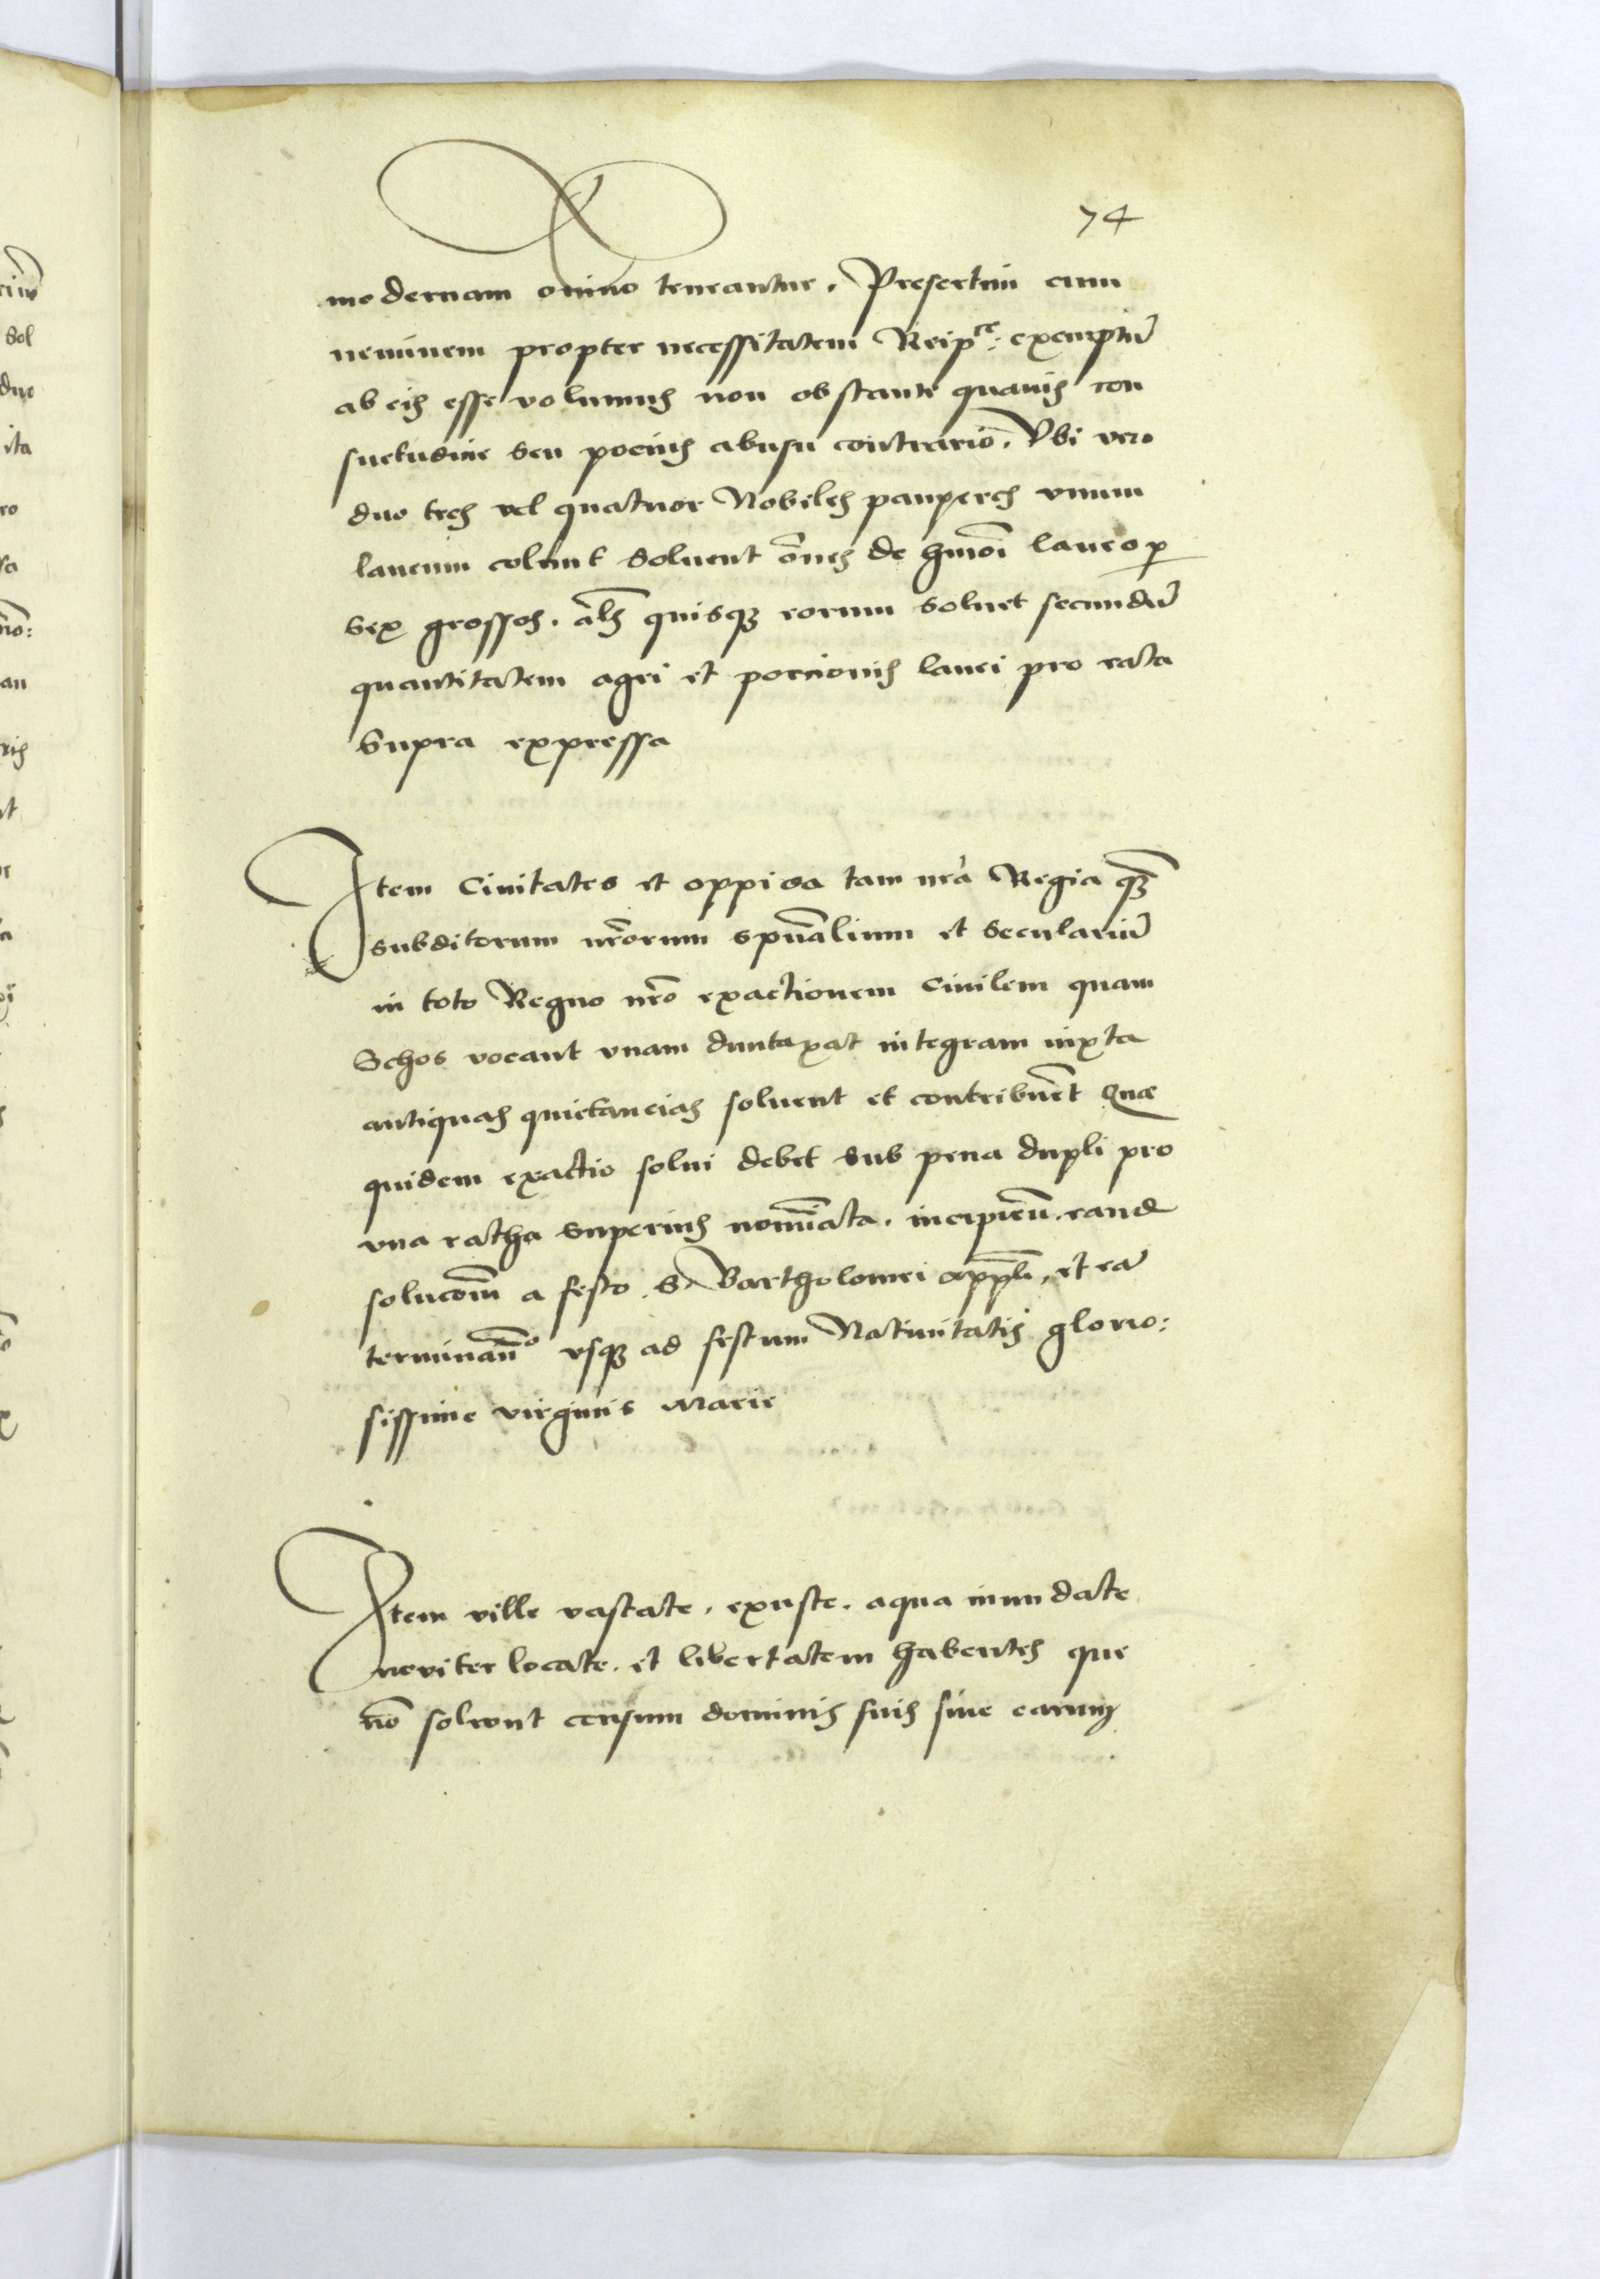 74
modernam omino teneantur. Presertim cum
neminem propter necessitatem Reipce: exemptũ
ab eis esse volumus non obstante quauis con
suetudine seu pocius abusu contrario. Vbi vero
duo tres vel quatuor Nobiles pauperes vnum
laneum colunt soluent oẽs de hmõi laneo p
sex grossos. als quisq3 eorum soluet secundũ
quantitatem agri et porcionis lanei pro rata
supra expressa
Item Ciuitates et oppida tam nrã Regia q3
subditorum nrõrum spũalium et seculariũ
in toto Regno nrõ exactionem Ciuilem quam
Schos vocant vnam duntaxat integram iuxta
antiquas quietancias soluent et contribuẽt Que
quidem exactio solui debet sub pena dupli pro
vna ratha superius nomĩata. incipiẽn. eand
solucõm a festo. S. Bartholomei appli. et eã
terminañ usq3 ad festum Natiuitatis glorio:
sissime virginis Marie
Item ville vastate. exuste. aqua inundate
noviter locate. et libertatem habentes que
nõ solvunt censum dominis suis siue earum